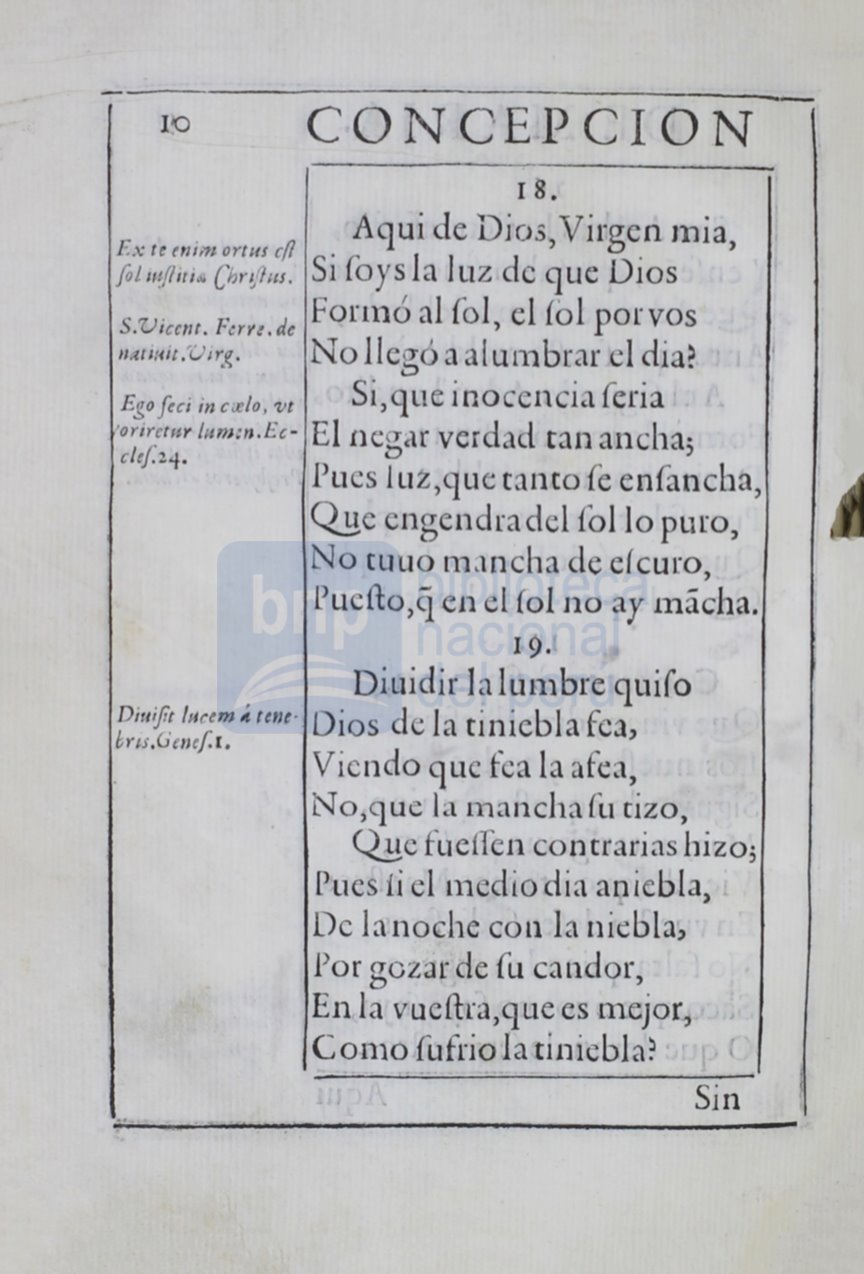 10 CONCEPCION
18.
Aqui de Dios, Virgen mia,
Si soys la luz de que Dios
Formó al sol, el sol por vos
No llegó a alumbrar el dia?
Si, que inocencia seria
El negar verdad tan ancha;
Pues luz, que tanto se ensancha,
Que engendra del sol lo puro,
No tuuo mancha de escuro,
Puesto, q̃ en el sol no ay mãcha.
19.
Diuidir la lumbre quiso
Dios de la tiniebla fea,
Viendo que fea la afea,
No, que la mancha su tizo,
Que fuessen contrarias hizo;
Pues si el medio dia aniebla,
De la noche con la niebla,
Por gozar de su candor,
En la vuestra, que es mejor,
Como sufrio la tiniebla?
Sin
Ex te enim ortus est
sol iustitiæ Christus.
S. Vicent. Ferre. de
natiuit. Virg.
Ego feci in cælo, vt
oriretur lumen. Ec-
cles. 24.
Diuisit lucem á tene-
bris. Genes. 1.
bnp
biblioteca
nacional
del perú